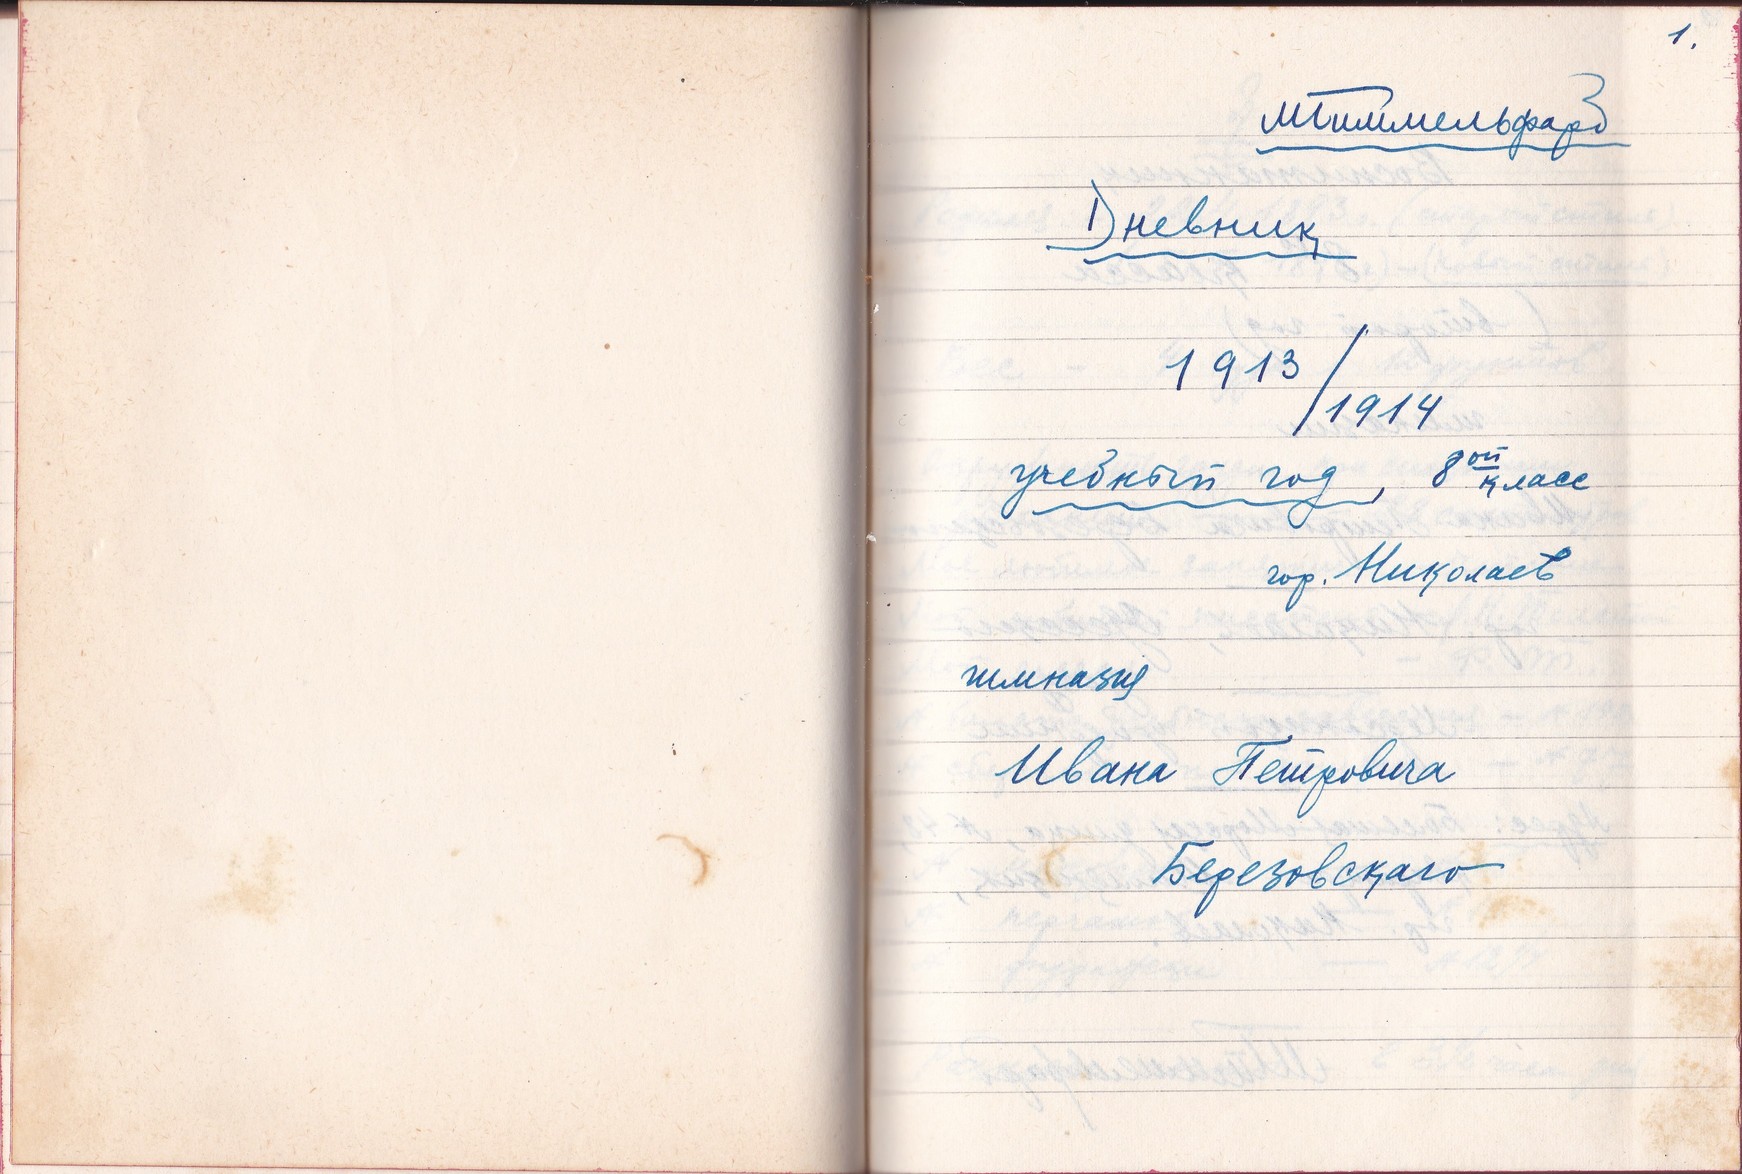 1.
МГиммельфарб
Дневник
1913/
1914
учебный год, 8ой класс
гор. Николаев
гимназия
Ивана Петровича
Березовскаго